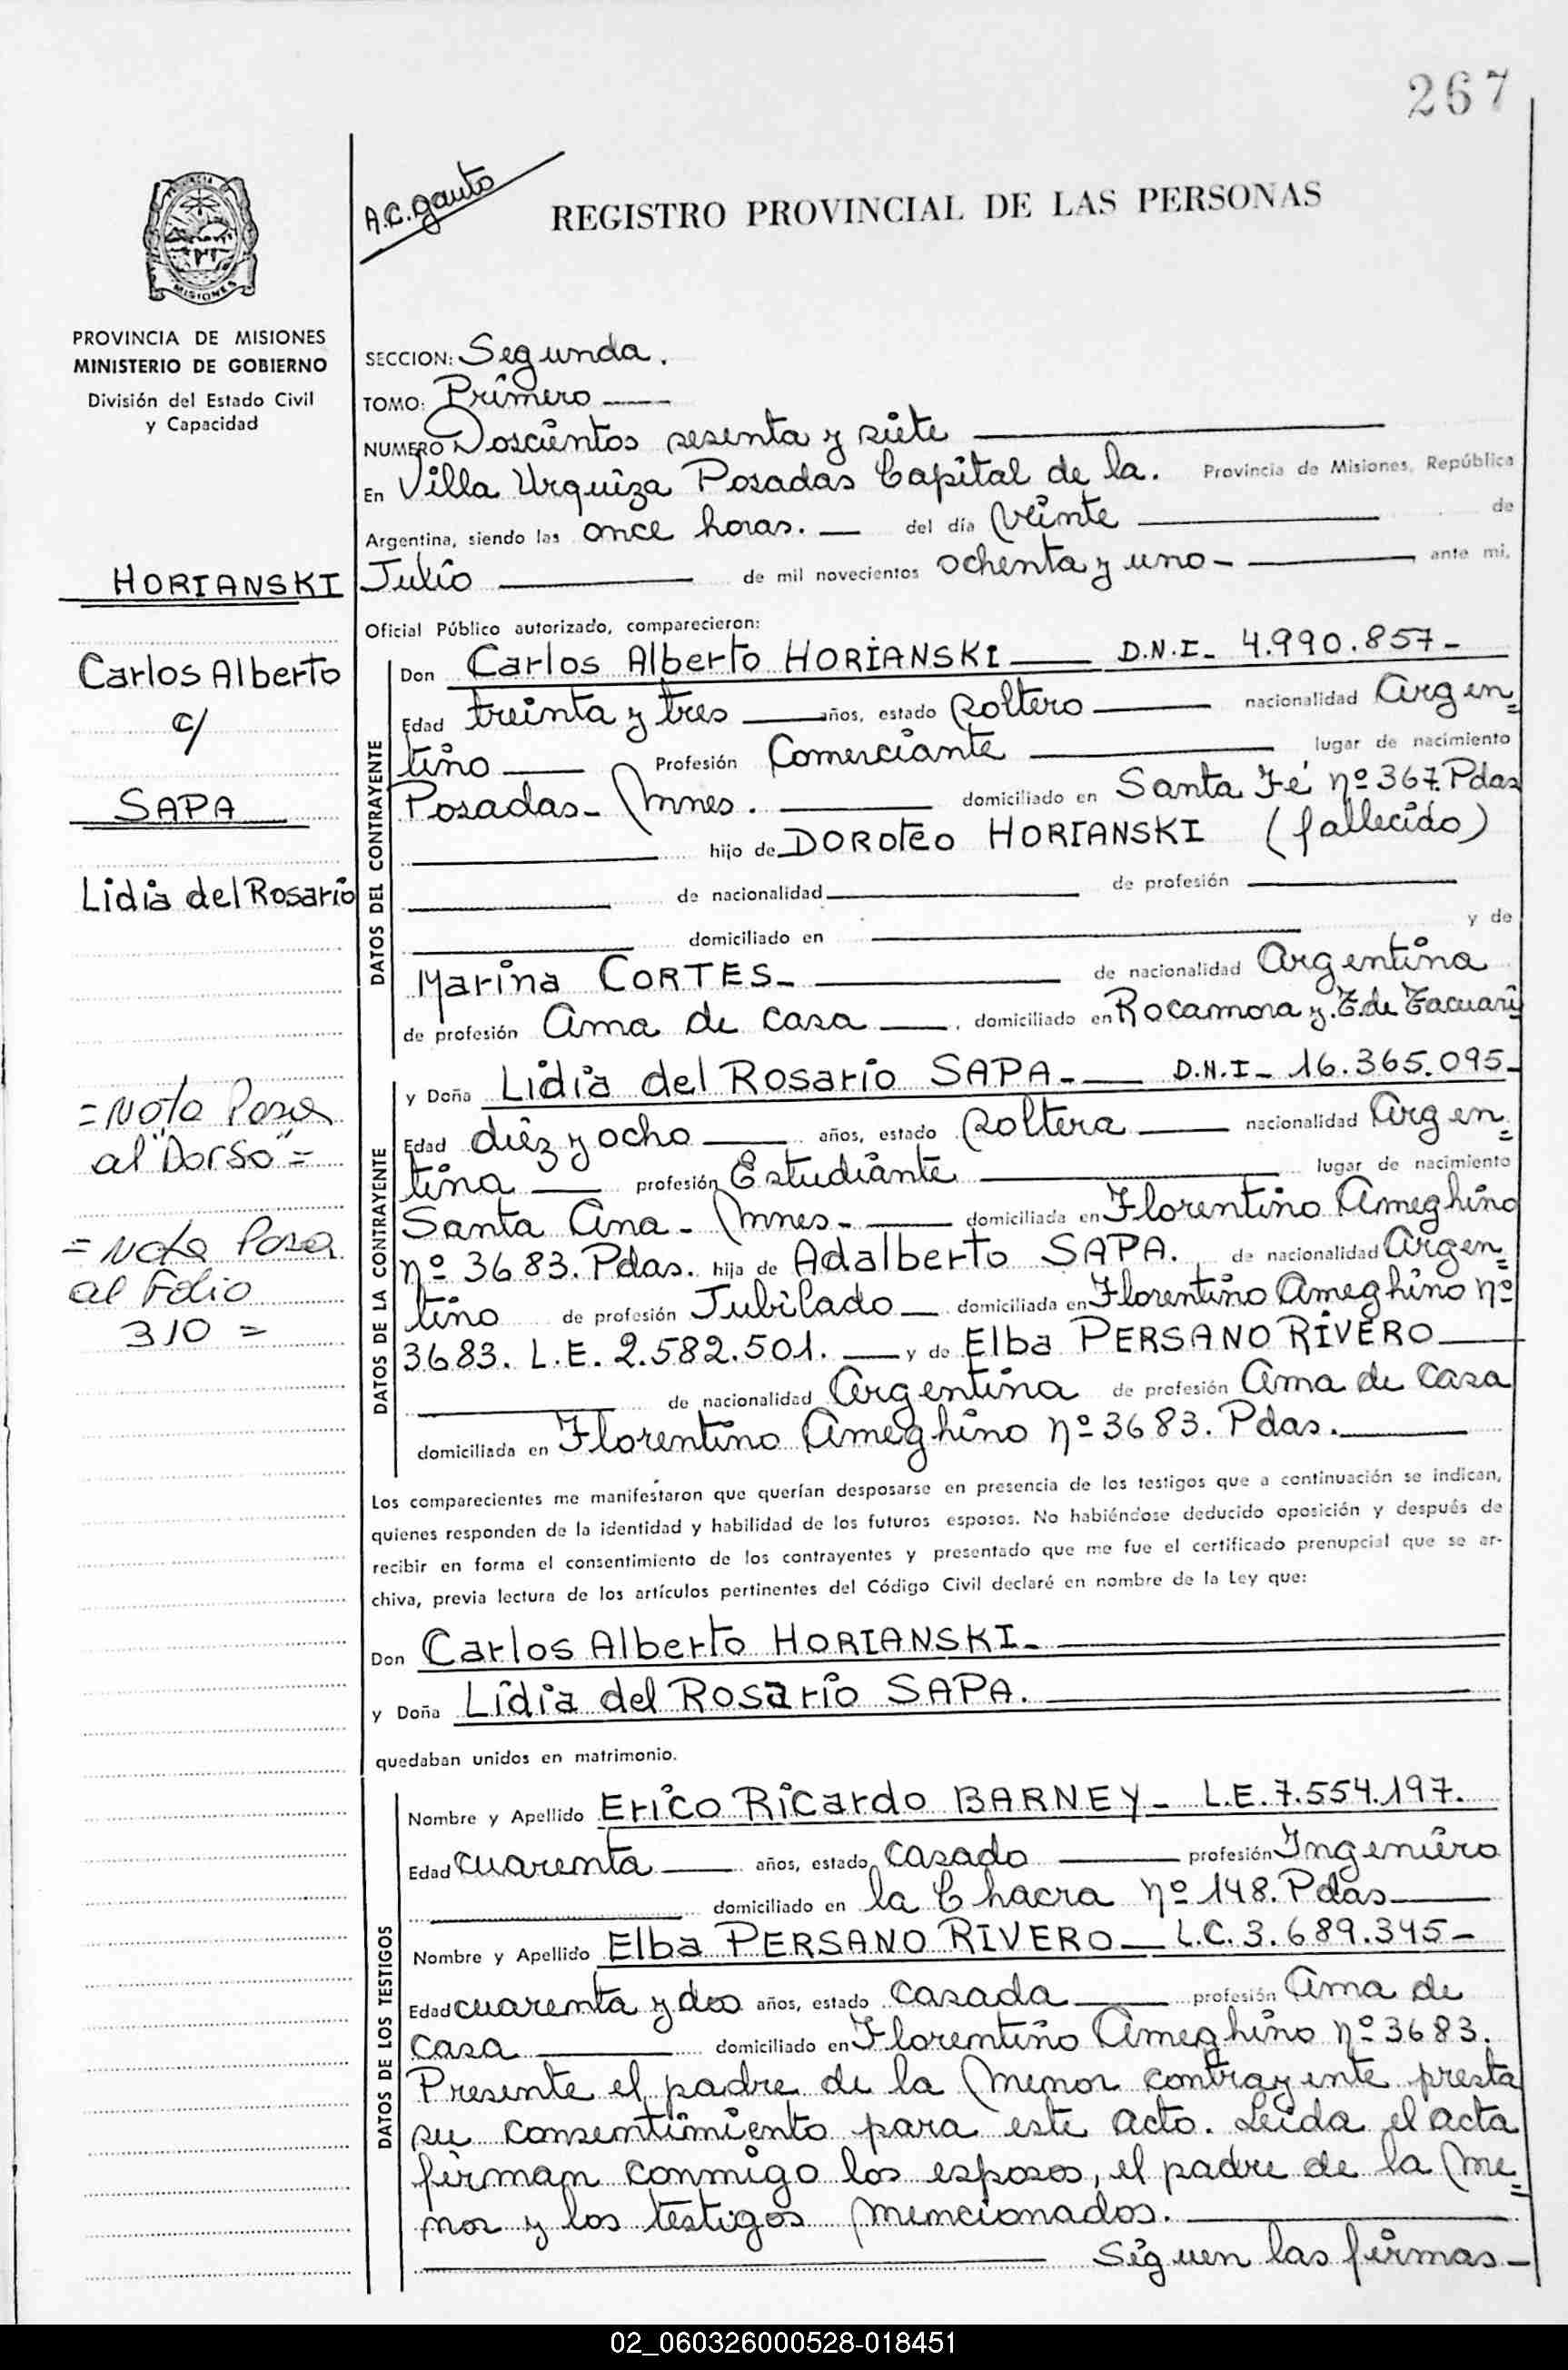 267
A.C. Gauto
REGISTRO PROVINCIAL DE LAS PERSONAS
MISIONES
PROVINCIA DE MISIONES
MINISTERIO DE GOBIERNO
División del Estado Civil
y Capacidad
HORIANSKI
Carlos Alberto
c/
SAPA
Lidia del Rosario
=Nota Pasa
al "Dorso"=
=Nota Pasa
al Folio
310=
SECCION: Segunda.
TOMO: Primero
NUMERO Doscientos sesenta y siete
En Villa Urquiza Posadas Capital de la. Provincia de Misiones, República
Argentina, siendo las once horas.— del día veinte de
Julio de mil novecientos ochenta y uno- ante mi,
Oficial Público autorizado, comparecieron:
DATOS DEL CONTRAYENTE
Don Carlos Alberto HORIANSKI D.N.I- 4.990.857-
Edad treinta y tres años, estado soltero nacionalidad Argen=
tino Profesión Comerciante lugar de nacimiento
Posadas- Mnes. domiciliado en Santa Fé nº 367. Pdas
hijo de DOROTEO HORIANSKI (fallecido)
de nacionalidad de profesión
domiciliado en y de
Marina CORTES- de nacionalidad Argentina
de profesión Ama de casa domiciliado en Rocamora y T. de Tacuari
DATOS DE LA CONTRAYENTE
y Doña Lidia del Rosario SAPA- D.N.I- 16.365.095-
Edad diez y ocho años, estado soltera nacionalidad Argen=
tina profesión Estudiante lugar de nacimiento
Santa Ana- Mnes- domiciliada en Florentino Ameghino
nº 3683. Pdas. hija de Adalberto SAPA. de nacionalidad Argen=
tino de profesión Jubilado domiciliada en Florentino Ameghino nº
3683. L.E. 2.582.501. y de Elba PERSANO RIVERO
de nacionalidad Argentina de profesión Ama de casa
domiciliada en Florentino Ameghino nº 3683. Pdas.
Los comparecientes me manifestaron que querían desposarse en presencia de los testigos que a continuación se indican,
quienes responden de la identidad y habilidad de los futuros esposos. No habiéndose deducido oposición y después de
recibir en forma el consentimiento de los contrayentes y presentado que me fue el certificado prenupcial que se ar-
chiva, previa lectura de los artículos pertinentes del Código Civil declaré en nombre de la Ley que:
Don Carlos Alberto HORIANSKI-
y Doña Lidia del Rosario SAPA.
quedaban unidos en matrimonio.
DATOS DE LOS TESTIGOS
Nombre y Apellido Erico Ricardo BARNEY- L.E. 7.554.197.
Edad cuarenta años, estado casado profesión Ingeniero
domiciliado en la Chacra nº 148. Pdas
Nombre y Apellido Elba PERSANO RIVERO L.C. 3.689.345-
Edad cuarenta y dos años, estado casada profesión Ama de
casa domiciliado en Florentino Ameghino nº 3683.
Presente el padre de la menor contrayente presta
su consentimiento para este acto. Leida el acta
firman conmigo los esposos, el padre de la me=
nor y los testigos mencionados.
Siguen las firmas-
02_060326000528-018451